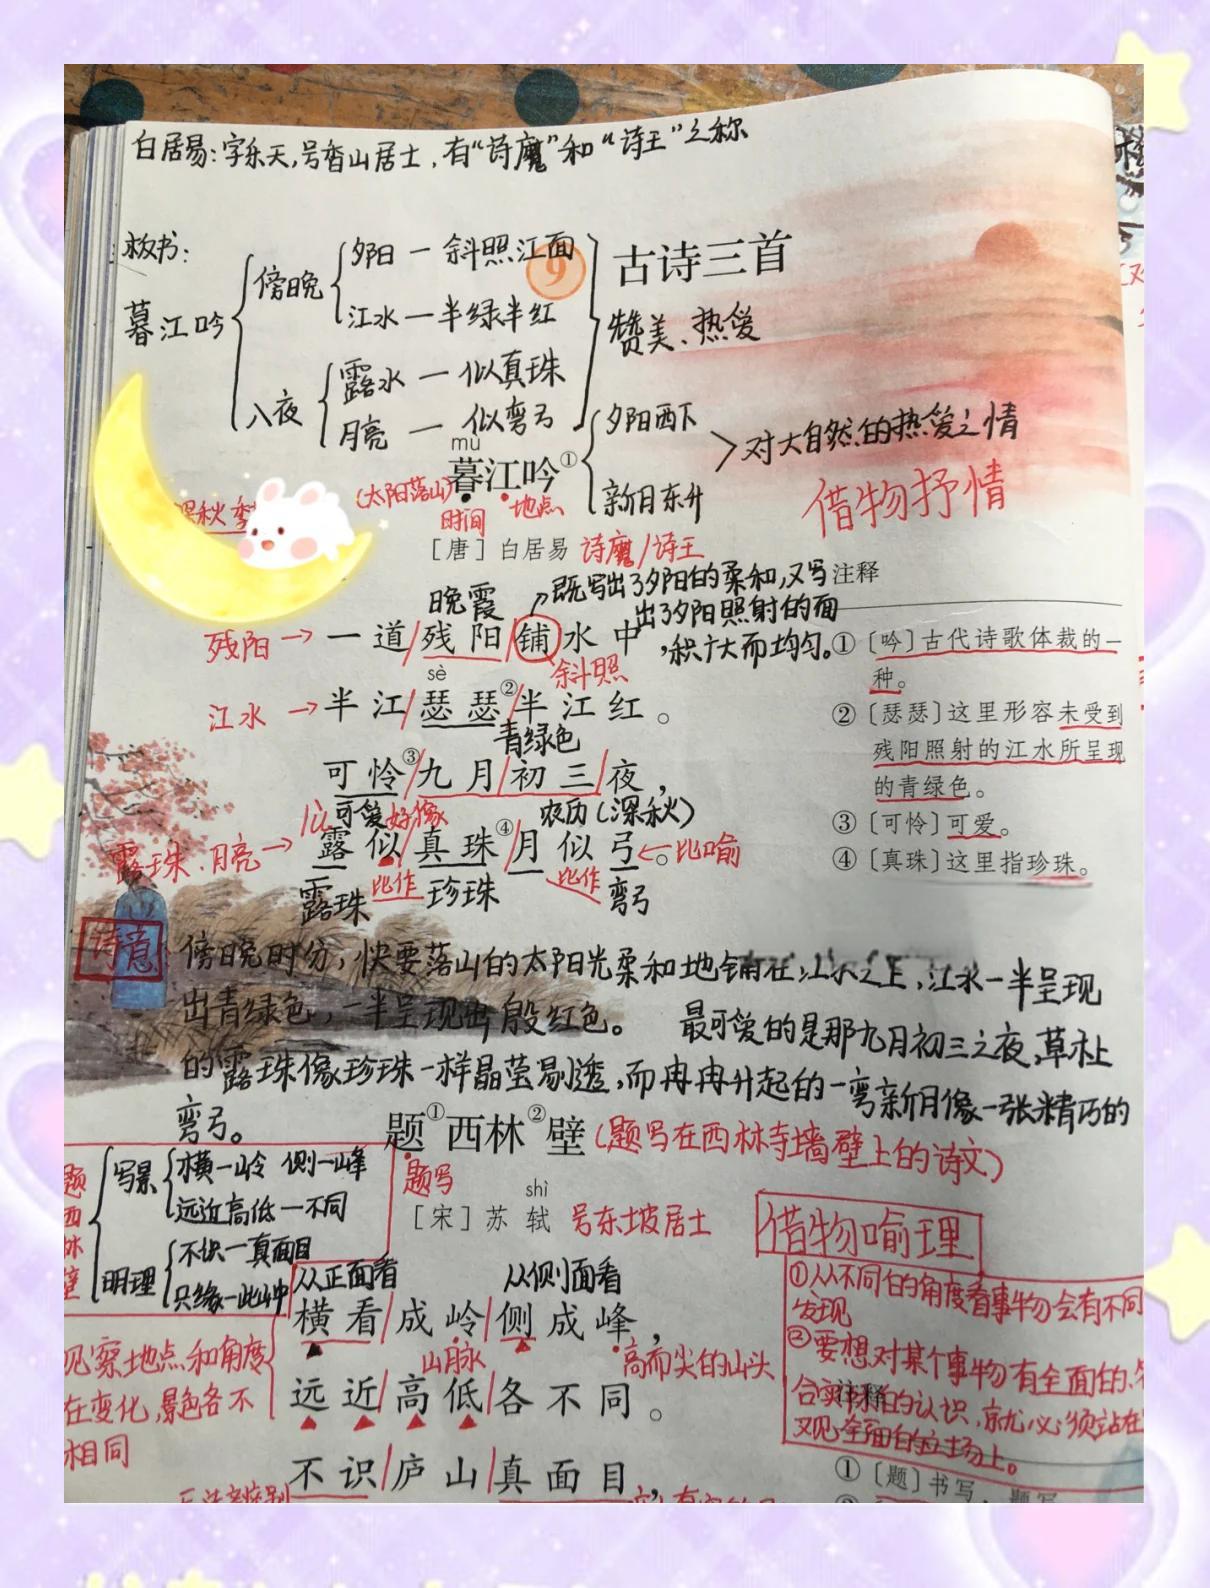 白居易:字乐天,号香山居士,有“诗魔”和“诗王”之称
板书:
暮江吟
傍晚
夕阳 — 斜照江面
江水 — 半绿半红
八夜
露水 — 似真珠
月亮 — 似弯弓
9 古诗三首
赞美、热爱
夕阳西下
新月东升
对大自然的热爱之情
借物抒情
mù
暮江吟①
(太阳落山)
时间
地点
深秋
[唐] 白居易 诗魔/诗王
晚霞
既写出了夕阳的柔和,又写
出了夕阳照射的面
积广大而均匀。
残阳→一道/残阳/铺水中,
斜照
sè
江水→半江/瑟瑟②/半江红。
青绿色
可怜③/九月/初三/夜,
可爱
好像
农历(深秋)
露珠、月亮→露似真珠④/月似弓。←比喻
露珠
比作
珍珠
比作
弯弓
注释
①〔吟〕古代诗歌体裁的一
种。
②〔瑟瑟〕这里形容未受到
残阳照射的江水所呈现
的青绿色。
③〔可怜〕可爱。
④〔真珠〕这里指珍珠。
诗意
傍晚时分,快要落山的太阳光柔和地铺在江水之上,江水一半呈现
出青绿色,一半呈现出殷红色。 最可爱的是那九月初三之夜,草木上
的露珠像珍珠一样晶莹剔透,而冉冉升起的一弯新月像一张精巧的
弯弓。
题①西林②壁(题写在西林寺墙壁上的诗文)
题写
shì
[宋] 苏轼 号东坡居士
题西林壁
写景
横—岭 侧—峰
远近高低—不同
明理
不识—真面目
只缘—此山中
借物喻理
①从不同的角度看事物会有不同
发现
②要想对某个事物有全面的、
合实际的认识,就必须站在
全面的立场上。
从正面看
从侧面看
横看/成岭/侧成峰,
山脉
高而尖的山头
见察地点和角度
在变化,景色各不
相同
远近/高低/各不同。
不识/庐山/真面目,
注释
①〔题〕书写,题写